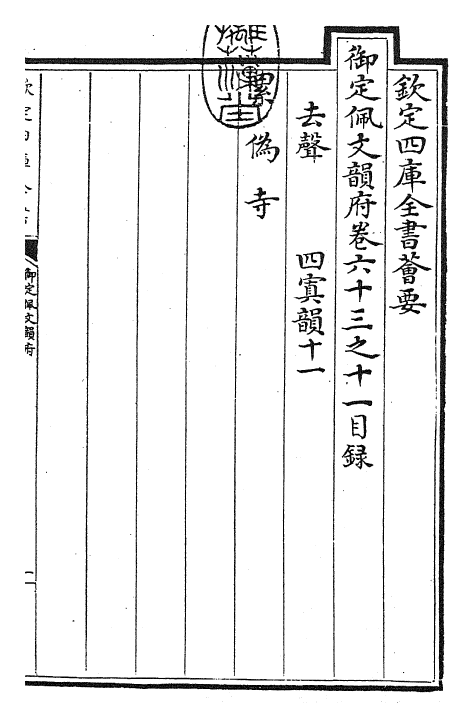 欽定四庫全書薈要
御定佩文韻府卷六十三之十一目録
去聲 四寘韻十一
累 偽 寺
御定佩文韻府